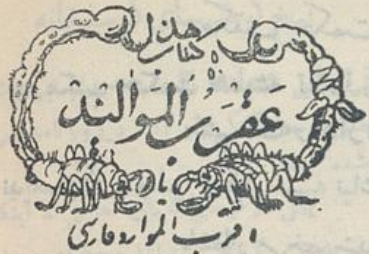 هذا
كتاب
عقرب الموالند
یا
اقرب الموارد فارسی